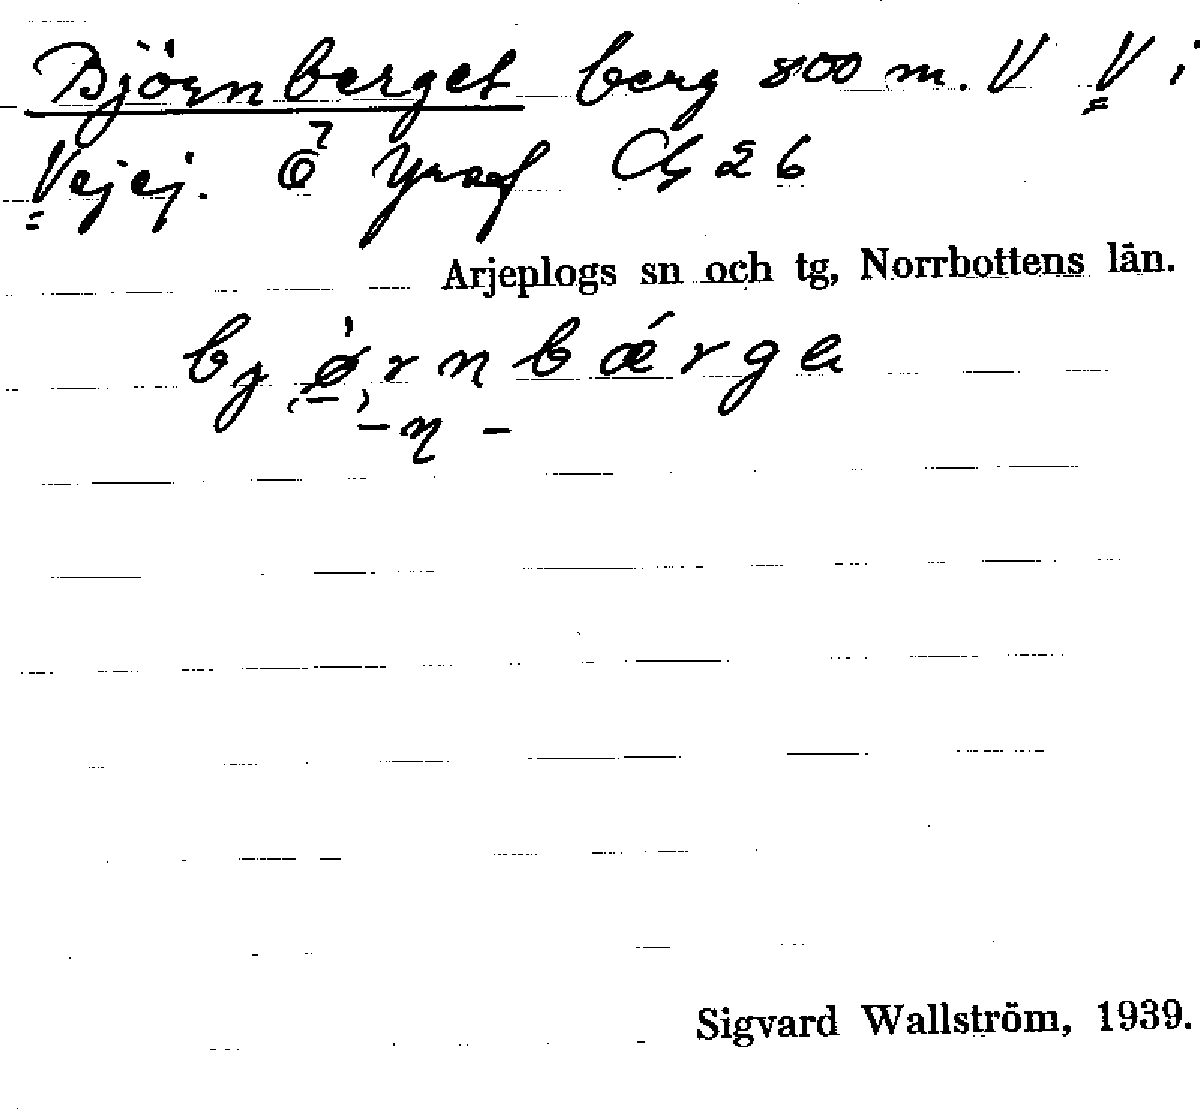 Björnberget berg 800 m. V V i
Vejej. Ch 26
Arjeplogs sn och tg, Norrbottens län.
bjørnbærga
-n-
Sigvard Wallström, 1939.